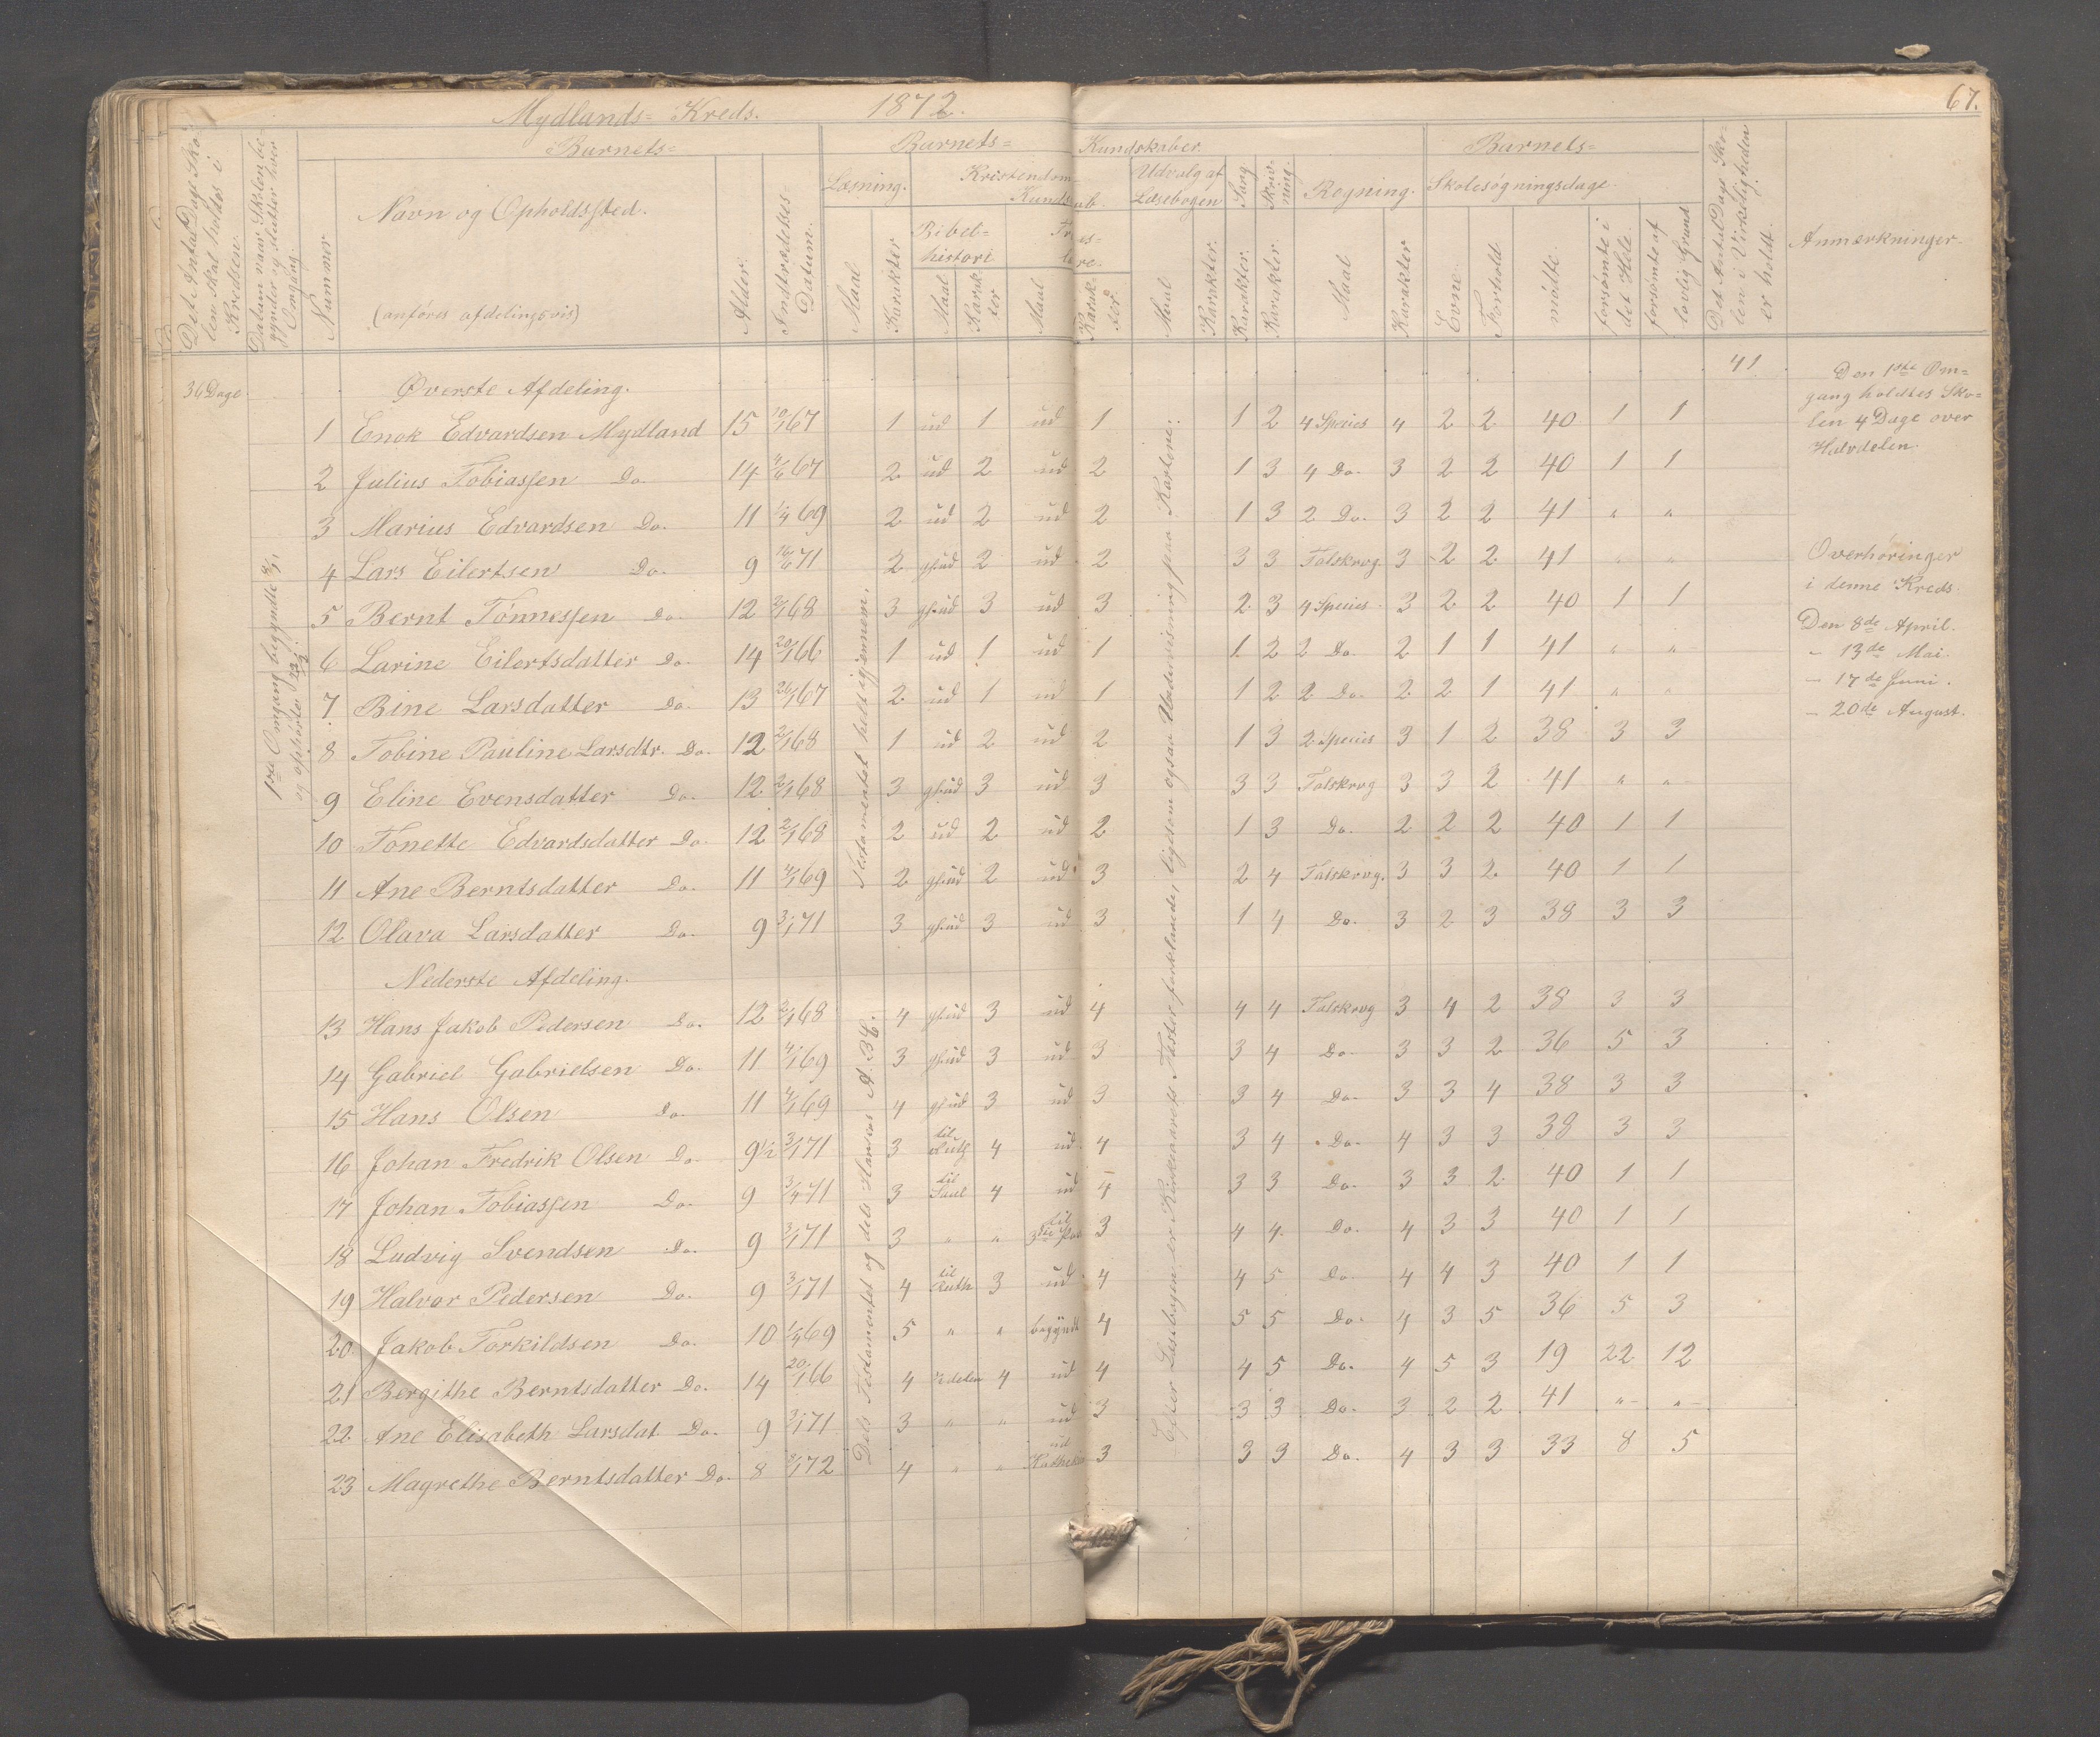 Mydlands= Kreds. 1872. 67.
Det Antal Dage Skolen skal holdes i Kredsen.
Datum naar Skolen begynder og slutter hver Omgang.
Nummer
Barnets=
Navn og Opholdssted.
(anføres afdelingsvis)
Alder.
Indtrædelses= Datum.
Barnets= Kundskaber.
Læsning. Kristendoms= Kundskab. Udvalg af Læsebogen Sang Skrivning. Regning.
Bibel= historie Troes= lære.
Maal Karakter Maal Karakter Maal Karakter Maal Karakter. Karakter. Karakter. Maal Karakter
Barnets= Skolesøgningsdage.
Evne. Forhold. mødte. forsømte i det Hele. forsømte af lovlig Grund
Det Antal Dage Skolen i Virkeligheden er holdt.
Anmærkninger.
36 Dage. Øverste Afdeling. 41
1 Enok Edvardsen Mydland 15 10/1 67 1 ud 1 ud 1 1 2 4 Species 4 2 2 40 1 1
2 Julius Tobiassen Do. 14 67 2 ud 2 ud 2 1 3 4 Do. 3 2 2 40 1 1
3 Marius Edvardsen Do. 11 69 2 ud 2 ud 2 1 3 2 Do. 3 2 2 41 " "
4 Lars Eilertsen Do. 9 71 2 gl.ud 2 ud 2 3 3 Talskrvg. 3 2 2 41 " "
5 Bernt Tønnessen Do. 12 2/1 68 3 gl.ud 3 ud 3 2 3 4 Species 3 2 2 40 1 1
6 Larine Eilertsdatter Do. 14 20/1 66 1 ud 1 ud 1 1 2 2 Do. 2 1 1 41 " "
7 Bine Larsdatter Do. 13 67 2 ud 1 ud 1 1 2 2 Do. 2 2 1 41 " "
8 Tobine Pauline Larsdtr. Do. 12 2/1 68 1 ud 2 ud 2 1 3 2 Species 3 1 2 38 3 3
9 Eline Evensdatter Do. 12 2/1 68 3 gl.ud 3 ud 3 3 3 Talskrvg 3 3 2 41 " "
10 Tonette Edvardsdatter Do. 12 2/1 68 2 ud 2 ud 2 1 3 Do. 2 2 2 40 1 1
11 Ane Berntsdatter Do. 11 4/1 69 2 gl.ud 2 ud 3 2 4 Talskrvg. 3 3 2 40 1 1
12 Olava Larsdatter Do. 9 3/1 71 3 gl.ud 3 ud 3 1 4 Do. 3 2 3 38 3 3
Nederste Afdeling.
13 Hans Jakob Pedersen Do. 12 2/1 68 4 gl.ud 3 ud 4 4 4 Talskrvg 3 4 2 38 3 3
14 Gabriel Gabrielsen Do. 11 4/1 69 3 gl.ud 3 ud 3 3 4 Do. 3 3 2 36 5 3
15 Hans Olsen Do. 11 4/1 69 4 gl.ud 3 ud 3 3 4 Do. 3 3 4 38 3 3
16 Johan Fredrik Olsen Do. 9½ 3/1 71 3 til Ruth 4 ud 4 3 4 Do. 4 3 3 38 3 3
17 Johan Tobiassen Do. 9 71 3 til Saul 4 ud 4 3 3 Do. 3 3 2 40 1 1
18 Ludvig Svendsen Do. 9 3/1 71 3 " " til 3die 3 4 4 Do. 4 3 3 40 1 1
19 Halvor Pedersen Do. 9 3/1 71 4 til Ruth 3 ud 4 4 5 Do 4 4 3 40 1 1
20. Jakob Torkildsen Do. 10 69 5 " " begyndt 4 5 5 Do. 4 3 5 36 5 3
21 Bergithe Berntsdatter Do. 14 20/1 66 4 4 ud 4 4 5 Do. 4 5 3 19 22 12
22 Ane Elisabeth Larsdat. Do. 9 3/1 71 3 " " ud 3 3 3 Do. 3 2 2 41 " "
23 Magrethe Berntsdatter Do. 8 172 4 " " ud 3 3 3 Do. 4 3 3 33 8 5
1ste Omgang begyndte
og ophørte
Testamentet helt igjennem.
Dels Testamentet og dels Hansens A.B.C.
Efter Læsebogen er forklarede, ligesom ogsaa Undervisning paa Kartene.
Den 1ste Om=
gang holdtes Sko=
len 4 Dage over
Halvdelen.
Overhøringer
i denne Kreds
Den 8de April.
– 13de Mai.
– 17de Juni.
– 20de August.